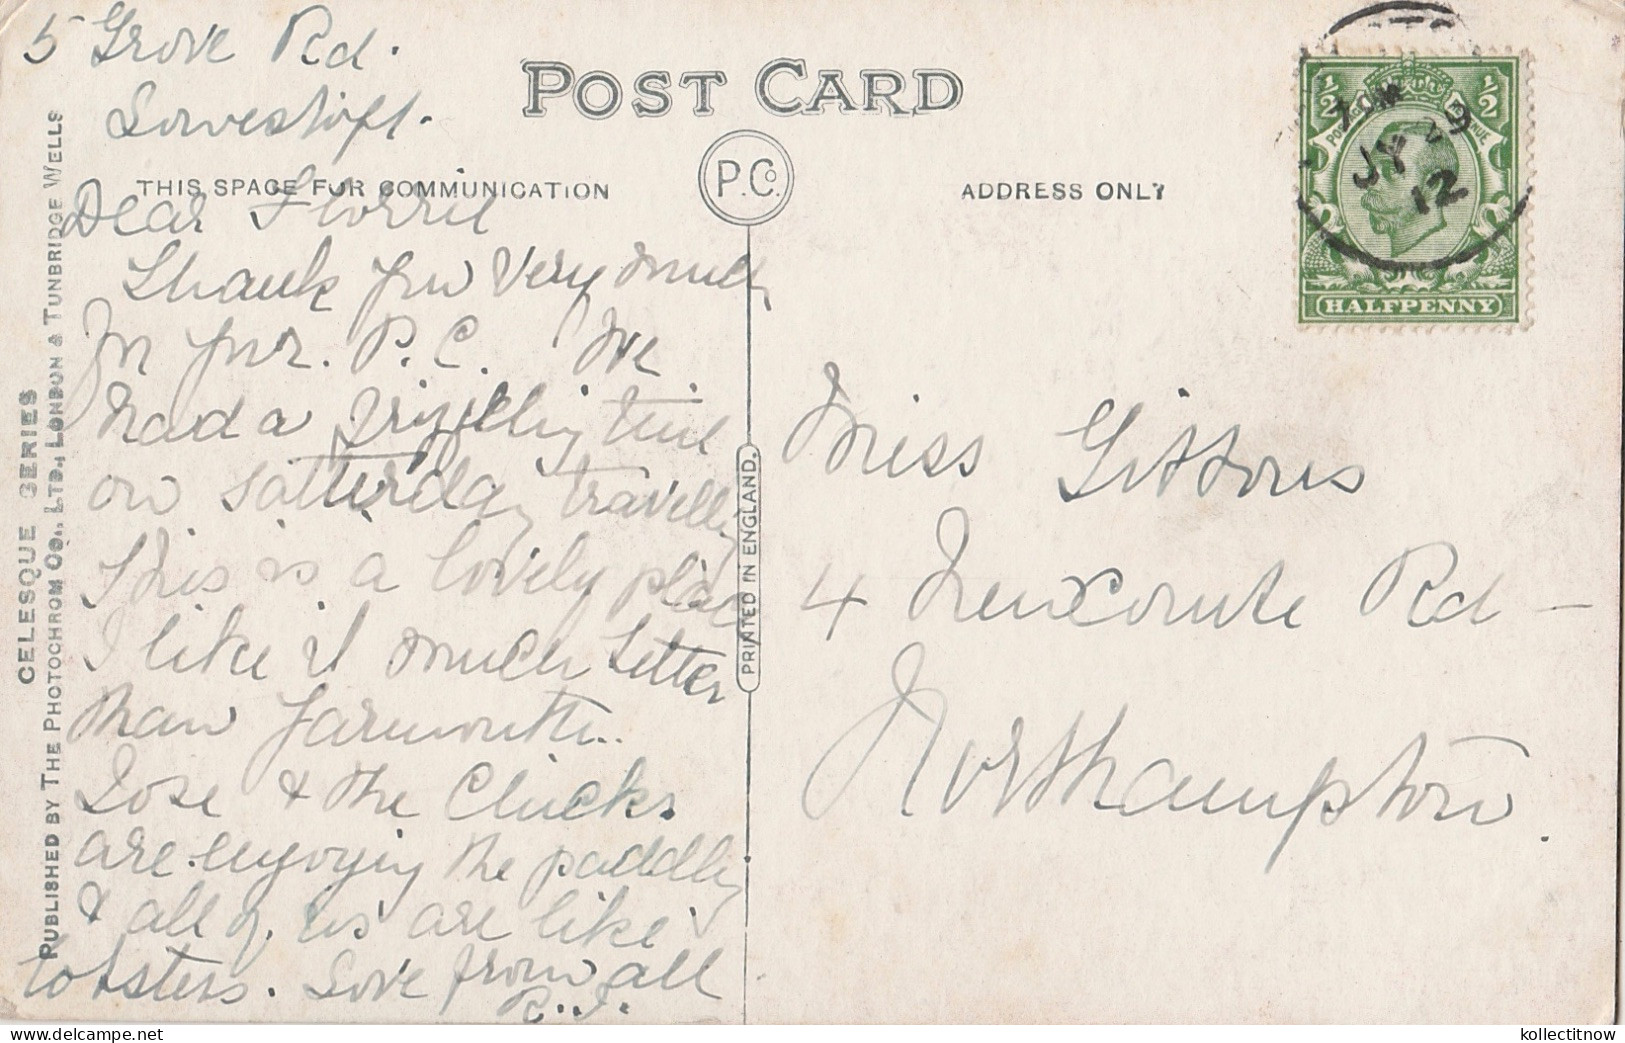 5 Grove Rd.
Lowestoft.
POST CARD
P.Co.
THIS SPACE FOR COMMUNICATION
ADDRESS ONLY
Dear Florrie
Thank you very much
for your. P.C. We
had a frizzling time
on satterday travelling
This is a lovely place
I like it much better
than Yarmouth..
Rose & the Chicks.
are enjoying the paddling
& all of us are like
lobsters. Love from all
R..J.
Miss Gittons
4 Rd -
Northampton.
PRINTED IN ENGLAND.
CELESQUE SERIES
PUBLISHED BY THE PHOTOCHROM CO., LTD., LONDON & TUNBRIDGE WELLS
½ ½
POSTAGE REVENUE
HALFPENNY
JY 29
12
kollectitnow